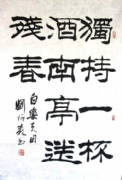 獨持一杯
酒南亭送
殘春
白樂天句